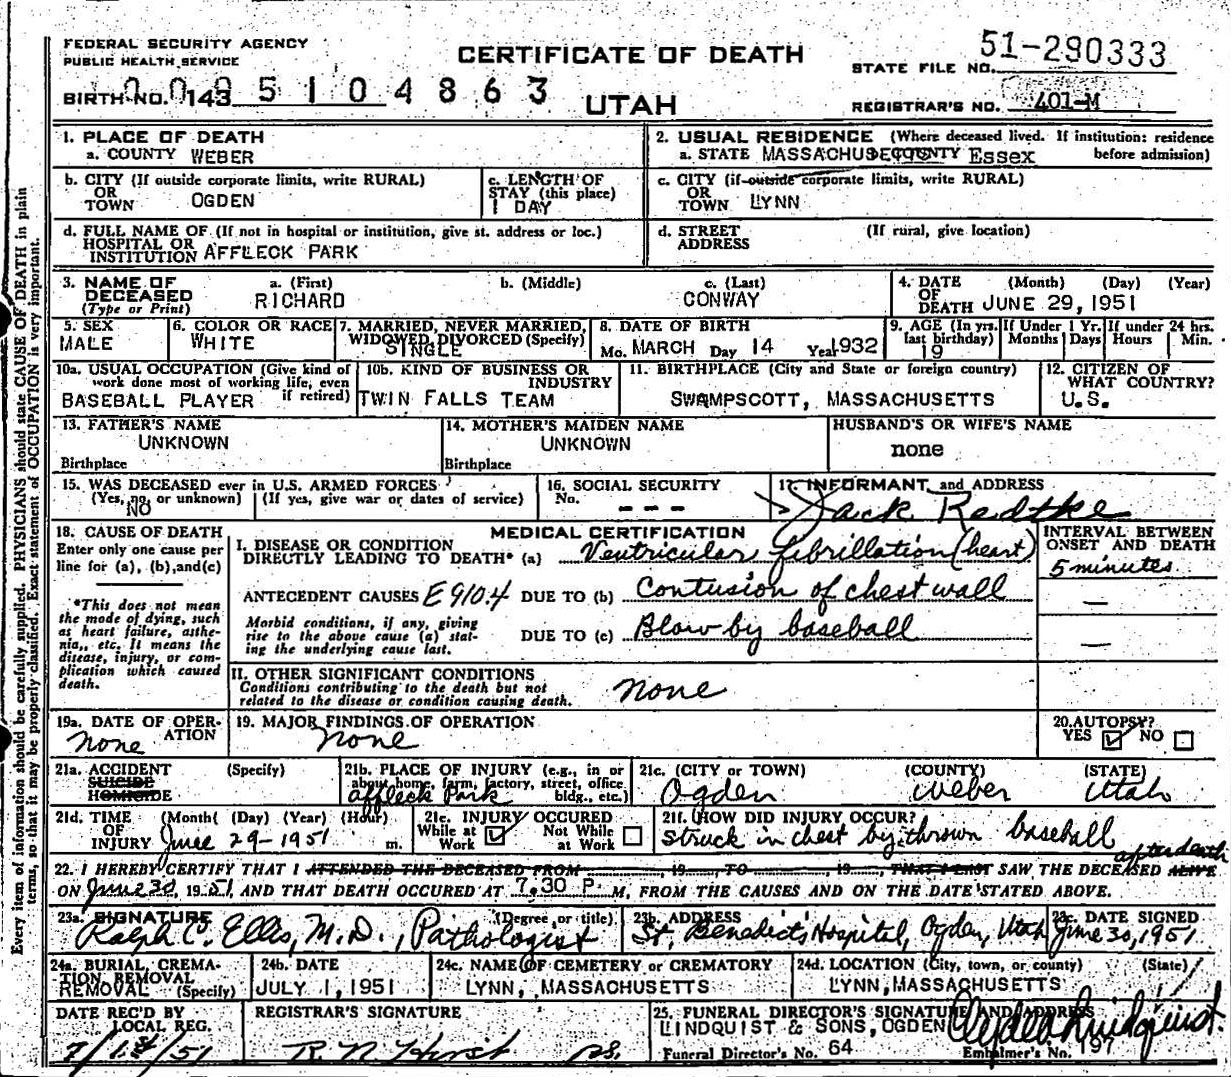 FEDERAL SECURITY AGENCY
PUBLIC HEALTH SERVICE
CERTIFICATE OF DEATH
51-290333
STATE FILE NO.
BIRTH NO. 143
5104863
UTAH
REGISTRAR'S NO. 401-M
1. PLACE OF DEATH
a. COUNTY WEBER
2. USUAL RESIDENCE (Where deceased lived. If institution: residence before admission)
a. STATE MASSACHUSE COUNTY Essex
b. CITY (If outside corporate limits, write RURAL)
OR
TOWN OGDEN
c. LENGTH OF
STAY (this place)
1 DAY
c. CITY (if outside corporate limits, write RURAL)
OR
TOWN LYNN
d. FULL NAME OF (If not in hospital or institution, give st. address or loc.)
HOSPITAL OR
INSTITUTION AFFLECK PARK
d. STREET (If rural, give location)
ADDRESS
3. NAME OF
DECEASED
(Type or Print)
a. (First)
RICHARD
b. (Middle)
c. (Last)
CONWAY
4. DATE (Month) (Day) (Year)
OF
DEATH JUNE 29, 1951
5. SEX
MALE
6. COLOR OR RACE
WHITE
7. MARRIED, NEVER MARRIED,
WIDOWED, DIVORCED (Specify)
SINGLE
8. DATE OF BIRTH
Mo. MARCH Day 14 Year 1932
9. AGE (In yrs. last birthday)
19
If Under 1 Yr. Months Days
If under 24 hrs. Hours Min.
10a. USUAL OCCUPATION (Give kind of
work done most of working life, even
if retired)
BASEBALL PLAYER
10b. KIND OF BUSINESS OR
INDUSTRY
TWIN FALLS TEAM
11. BIRTHPLACE (City and State or foreign country)
SWAMPSCOTT, MASSACHUSETTS
12. CITIZEN OF
WHAT COUNTRY?
U.S.
13. FATHER'S NAME
UNKNOWN
Birthplace
14. MOTHER'S MAIDEN NAME
UNKNOWN
Birthplace
HUSBAND'S OR WIFE'S NAME
none
15. WAS DECEASED ever in U.S. ARMED FORCES
(Yes, no, or unknown) (If yes, give war or dates of service)
NO
16. SOCIAL SECURITY
No.
- - -
17. INFORMANT and ADDRESS
Jack Radtke
18. CAUSE OF DEATH
Enter only one cause per
line for (a), (b), and (c)
*This does not mean
the mode of dying, such
as heart failure, asthe-
nia,, etc. It means the
disease, injury, or com-
plication which caused
death.
MEDICAL CERTIFICATION
I. DISEASE OR CONDITION
DIRECTLY LEADING TO DEATH* (a) Ventricular fibrillation (heart)
ANTECEDENT CAUSES E910.4 DUE TO (b) Contusion of chest wall
Morbid conditions, if any, giving
rise to the above cause (a) stat-
ing the underlying cause last.
DUE TO (c) Blow by baseball
INTERVAL BETWEEN
ONSET AND DEATH
5 minutes
—
—
II. OTHER SIGNIFICANT CONDITIONS
Conditions contributing to the death but not
related to the disease or condition causing death.
none
19a. DATE OF OPER-
ATION
none
19. MAJOR FINDINGS OF OPERATION
none
20. AUTOPSY?
YES NO
21a. ACCIDENT (Specify)
SUICIDE
HOMICIDE
21b. PLACE OF INJURY (e.g., in or
about home, farm, factory, street, office
bldg., etc.)
Affleck Park
21c. (CITY or TOWN) (COUNTY) (STATE)
Ogden Weber Utah
21d. TIME (Month( (Day) (Year) (Hour)
OF
INJURY June 29-1951 m.
21e. INJURY OCCURED
While at Work Not While at Work
21f. HOW DID INJURY OCCUR?
Struck in chest by thrown baseball
22. I HEREBY CERTIFY THAT I ATTENDED THE DECEASED FROM 19 TO 19 THAT I LAST SAW THE DECEASED ALIVE after death
ON June 30, 1951, AND THAT DEATH OCCURED AT 7.30 P. M, FROM THE CAUSES AND ON THE DATE STATED ABOVE.
23a. SIGNATURE (Degree or title)
Ralph C. Ellis, M.D., Pathologist
23b. ADDRESS
St. Benedict's Hospital, Ogden, Utah
23c. DATE SIGNED
June 30, 1951
24a. BURIAL, CREMA-
TION, REMOVAL
REMOVAL (Specify)
24b. DATE
JULY 1, 1951
24c. NAME OF CEMETERY or CREMATORY
LYNN, MASSACHUSETTS
24d. LOCATION (City, town, or county) (State)
LYNN, MASSACHUSETTS
DATE REC'D BY
LOCAL REG.
7/1st/51
REGISTRAR'S SIGNATURE
25. FUNERAL DIRECTOR'S SIGNATURE AND ADDRESS
LINDQUIST & SONS, OGDEN
Funeral Director's No. 64
Embalmer's No. 197
Every item of information should be carefully supplied. PHYSICIANS should state CAUSE OF DEATH in plain
terms, so that it may be properly classified. Exact statement of OCCUPATION is very important.